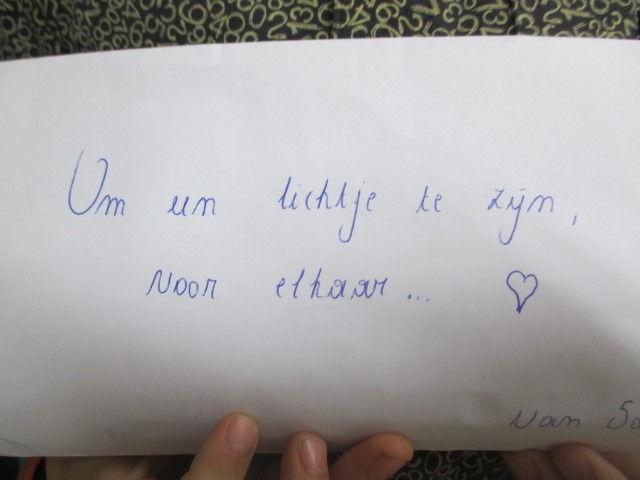 Om een lichtje te zijn,
voor elkaar... ♡
van